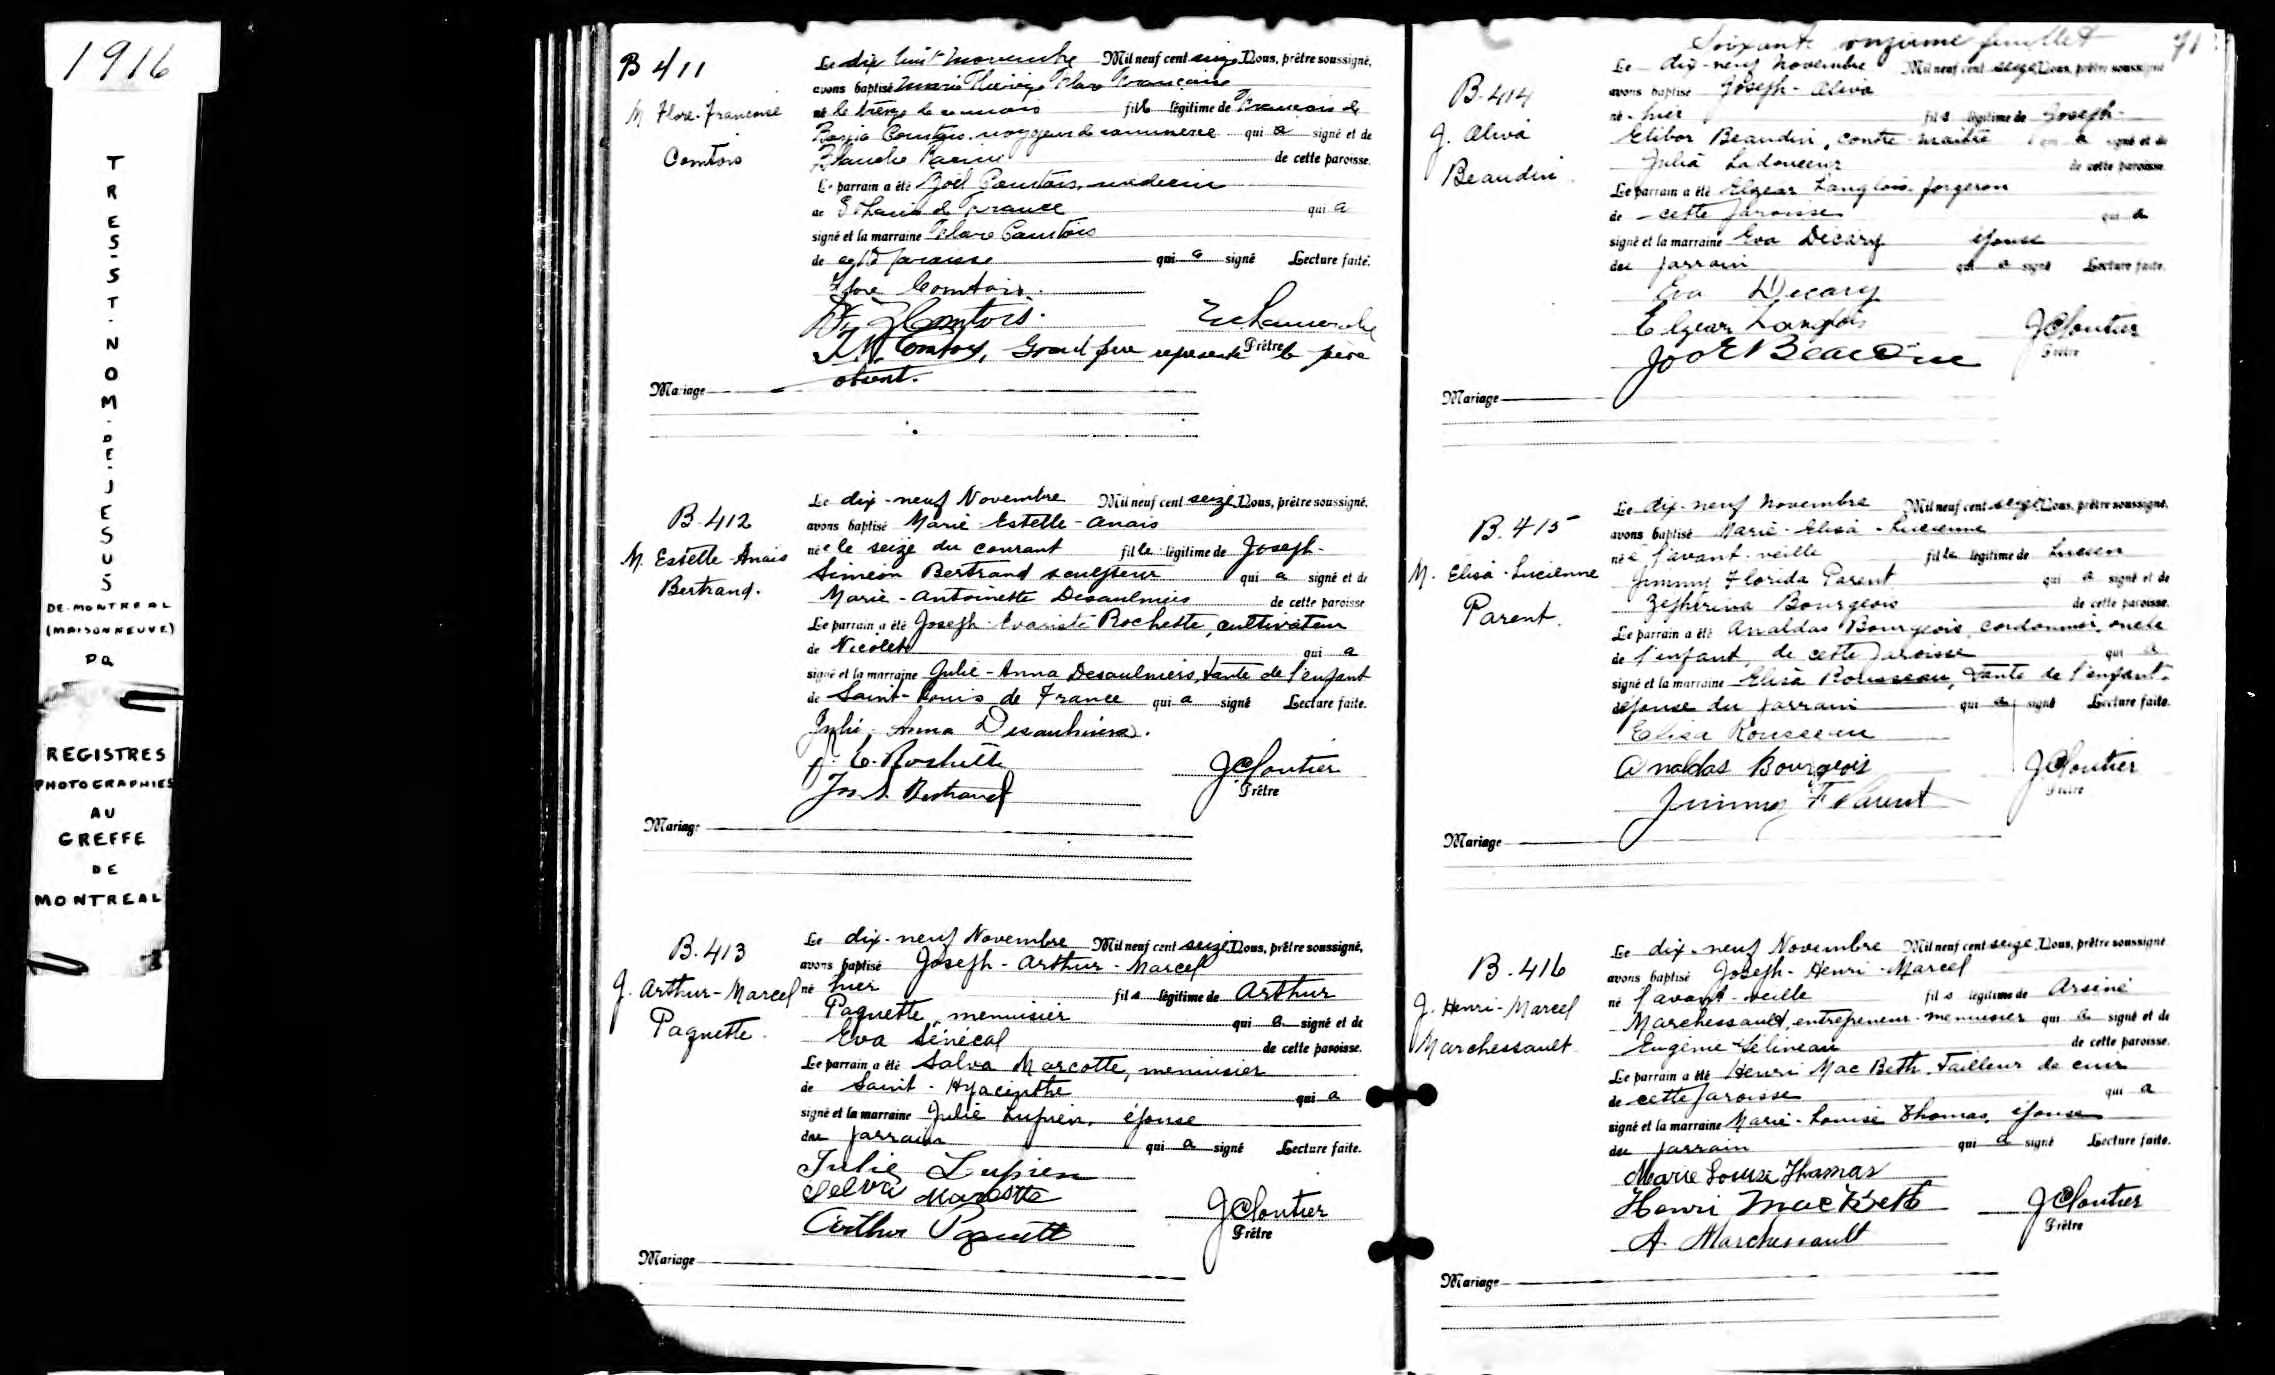 1916
TRES-ST-NOM-DE-JESUS
DE-MONTREAL
(MAISONNEUVE)
PQ
REGISTRES
PHOTOGRAPHIES
AU
GREFFE
DE
MONTREAL
B 411
M. Flore-Francoise
Comtois
Le dix huit novembre Mil neuf cent seize Nous, prêtre soussigné,
avons baptisé Marie Flore Francoise
né le treize du courant fille légitime de Francois de
Borgia Comtois, voyageur de commerce qui a signé et de
Blanche Racine de cette paroisse.
Le parrain a été Zoël Comtois, médecin
de St Louis de France qui a
signé et la marraine Flore Comtois
de cette paroisse qui a signé Lecture faite.
Flore Comtois.
Comtois.
Comtois, Grand père représente le père
absent.
Prêtre
Mariage
B-412
M. Estelle-Anais
Bertrand.
Le dix-neuf Novembre Mil neuf cent seize Nous, prêtre soussigné,
avons baptisé Marie Estelle-Anais
née le seize du courant fille légitime de Joseph-
Siméon Bertrand sculpteur qui a signé et de
Marie-Antoinette Desaulniers de cette paroisse
Le parrain a été Joseph Evariste Rochette, cultivateur
de Nicolet qui a
signé et la marraine Julie-Anna Desaulniers, tante de l'enfant
de Saint-Louis de France qui a signé Lecture faite.
Julie-Anna Desaulniers.
J. E. Rochette
Jos. S. Bertrand
J Cloutier
Prêtre
Mariage
B-413
J. Arthur-Marcel
Paquette.
Le dix-neuf Novembre Mil neuf cent seize Nous, prêtre soussigné,
avons baptisé Joseph-Arthur-Marcel
né hier fils légitime de Arthur
Paquette, menuisier qui a signé et de
Eva Sénécal de cette paroisse.
Le parrain a été Salva Marcotte, menuisier
de Saint-Hyacinthe qui a
signé et la marraine Julie Lupien, épouse
du parrain qui a signé Lecture faite.
Julie Lupien
Selva Marcotte
Arthur Paquette
J Cloutier
Prêtre
Mariage
Soixante onzième feuillet 71
B-414
J. Aliva
Beaudin
Le dix-neuf Novembre Mil neuf cent seize Nous, prêtre soussigné
avons baptisé Joseph-Aliva
né hier fils légitime de Joseph-
Elibor Beaudin, contre-maître qui a signé et de
Julia Ladouceur de cette paroisse
Le parrain a été Elzear Langlois, forgeron
de cette paroisse qui a
signé et la marraine Eva Décary épouse
du parrain qui a signé Lecture faite.
Eva Decary
Elzear Langlois
Jos E Beaudin
J Cloutier
Prêtre
Mariage
B. 415
M. Elisa-Lucienne
Parent.
Le dix-neuf Novembre Mil neuf cent seize Nous, prêtre soussigné,
avons baptisé Marie-Elisa-Lucienne
née l'avant-veille fille légitime de Lucien
Jimmy Florida Parent qui a signé et de
Zephirina Bourgeois de cette paroisse.
Le parrain a été Analdas Bourgeois, cordonnier, oncle
de l'enfant, de cette paroisse qui a
signé et la marraine Elisa Rousseau, tante de l'enfant.
épouse du parrain qui a signé Lecture faite.
Elisa Rousseau
Analdas Bourgeois
Jimmy F Parent
J Cloutier
Prêtre
Mariage
B. 416
J. Henri-Marcel
Marchessault
Le dix-neuf Novembre Mil neuf cent seize Nous, prêtre soussigné
avons baptisé Joseph-Henri-Marcel
né l'avant-veille fils légitime de Arsène
Marchessault, entrepreneur-menuisier qui a signé et de
Eugénie Gélineau de cette paroisse.
Le parrain a été Henri Mac Beth, tailleur de cuir
de cette paroisse qui a
signé et la marraine Marie-Louise Thomas, épouse
du parrain qui a signé Lecture faite.
Marie Louise Thomas
Henri MacBeth
A. Marchessault
J Cloutier
Prêtre
Mariage